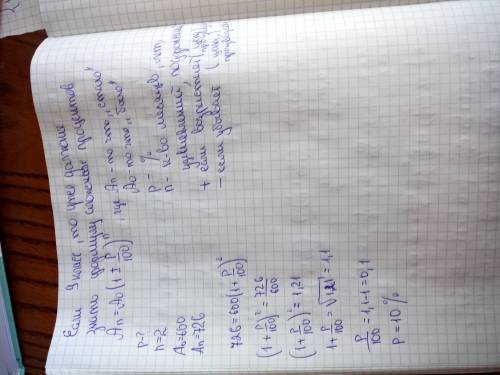 Если 9 класс, то уже должне
знать формулу сложных процентов
Aₙ = A₀ (1 ± p/100)ⁿ, где Aₙ - то что "стало"
A₀ - то что "было"
p - %
n - к-во месяцев, лет,
+ если возрастает
- если убывает
p - ?
n = 2
A₀ = 600
Aₙ = 726
726 = 600 (1 + p/100)²
(1 + p/100)² = 726/600
(1 + p/100)² = 1,21
1 + p/100 = √1,21 = 1,1
p/100 = 1,1 - 1 = 0,1
p = 10 %